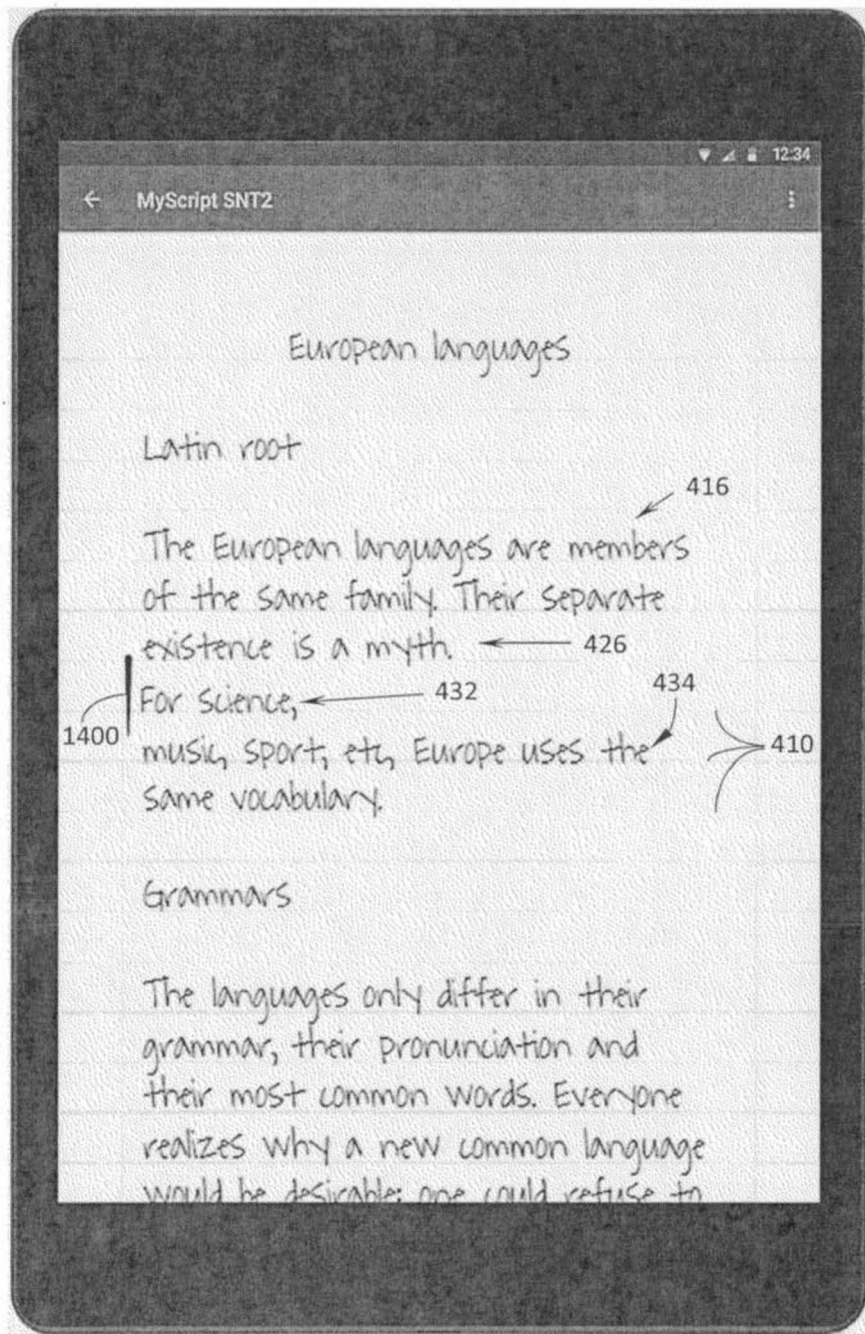 12:34
MyScript SNT2
European languages
Latin root
416
The European languages are members
of the same family. Their separate
existence is a myth.
426
For science,
432
434
1400
music, sport, etc, Europe uses the
410
same vocabulary.
Grammars
The languages only differ in their
grammar, their pronunciation and
their most common words. Everyone
realizes why a new common language
would be desirable: one could refuse to